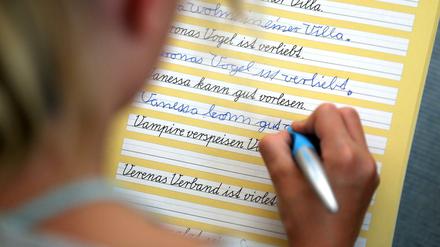 Villa.
wohnt in einer Villa.
ronas Vogel ist verliebt.
ronas Vogel ist verliebt.
Vanessa kann gut vorlesen.
Vanessa kann gut
Vampire verspeisen
Verenas Verband ist violet